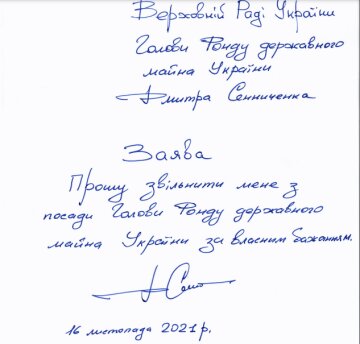 Верховній Раді України
Голови Фонду державного
майна України
Дмитра Сенниченка
Заява
Прошу звільнити мене з
посади Голови Фонду державного
майна України за власним бажанням.
16 листопада 2021 р.